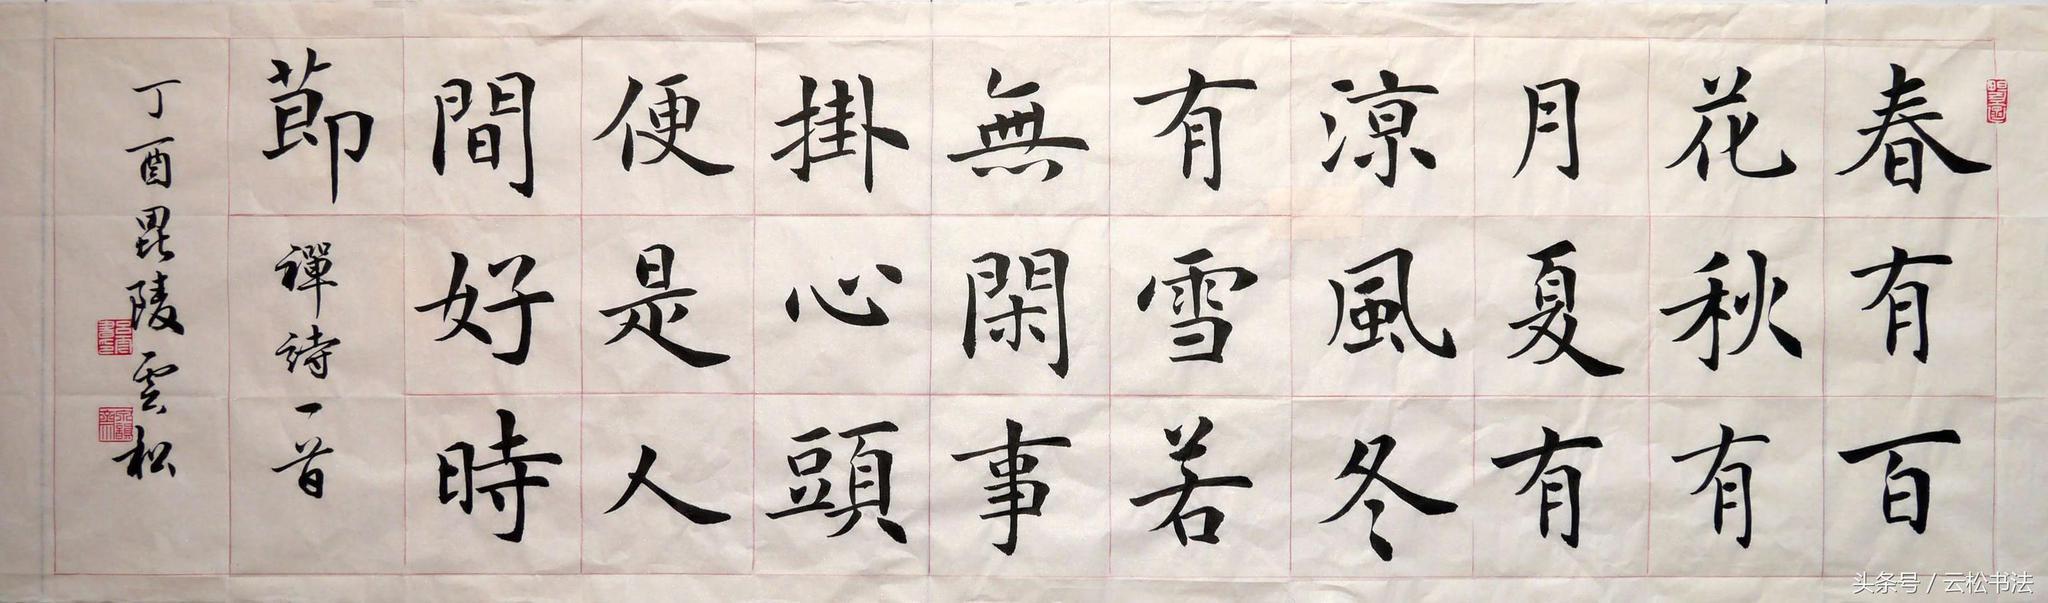 春有百
花秋有
月夏有
涼風冬
有雪若
無閑事
掛心頭
便是人
間好時
節 禪詩一首
丁酉毘陵雲松
头条号 / 云松书法